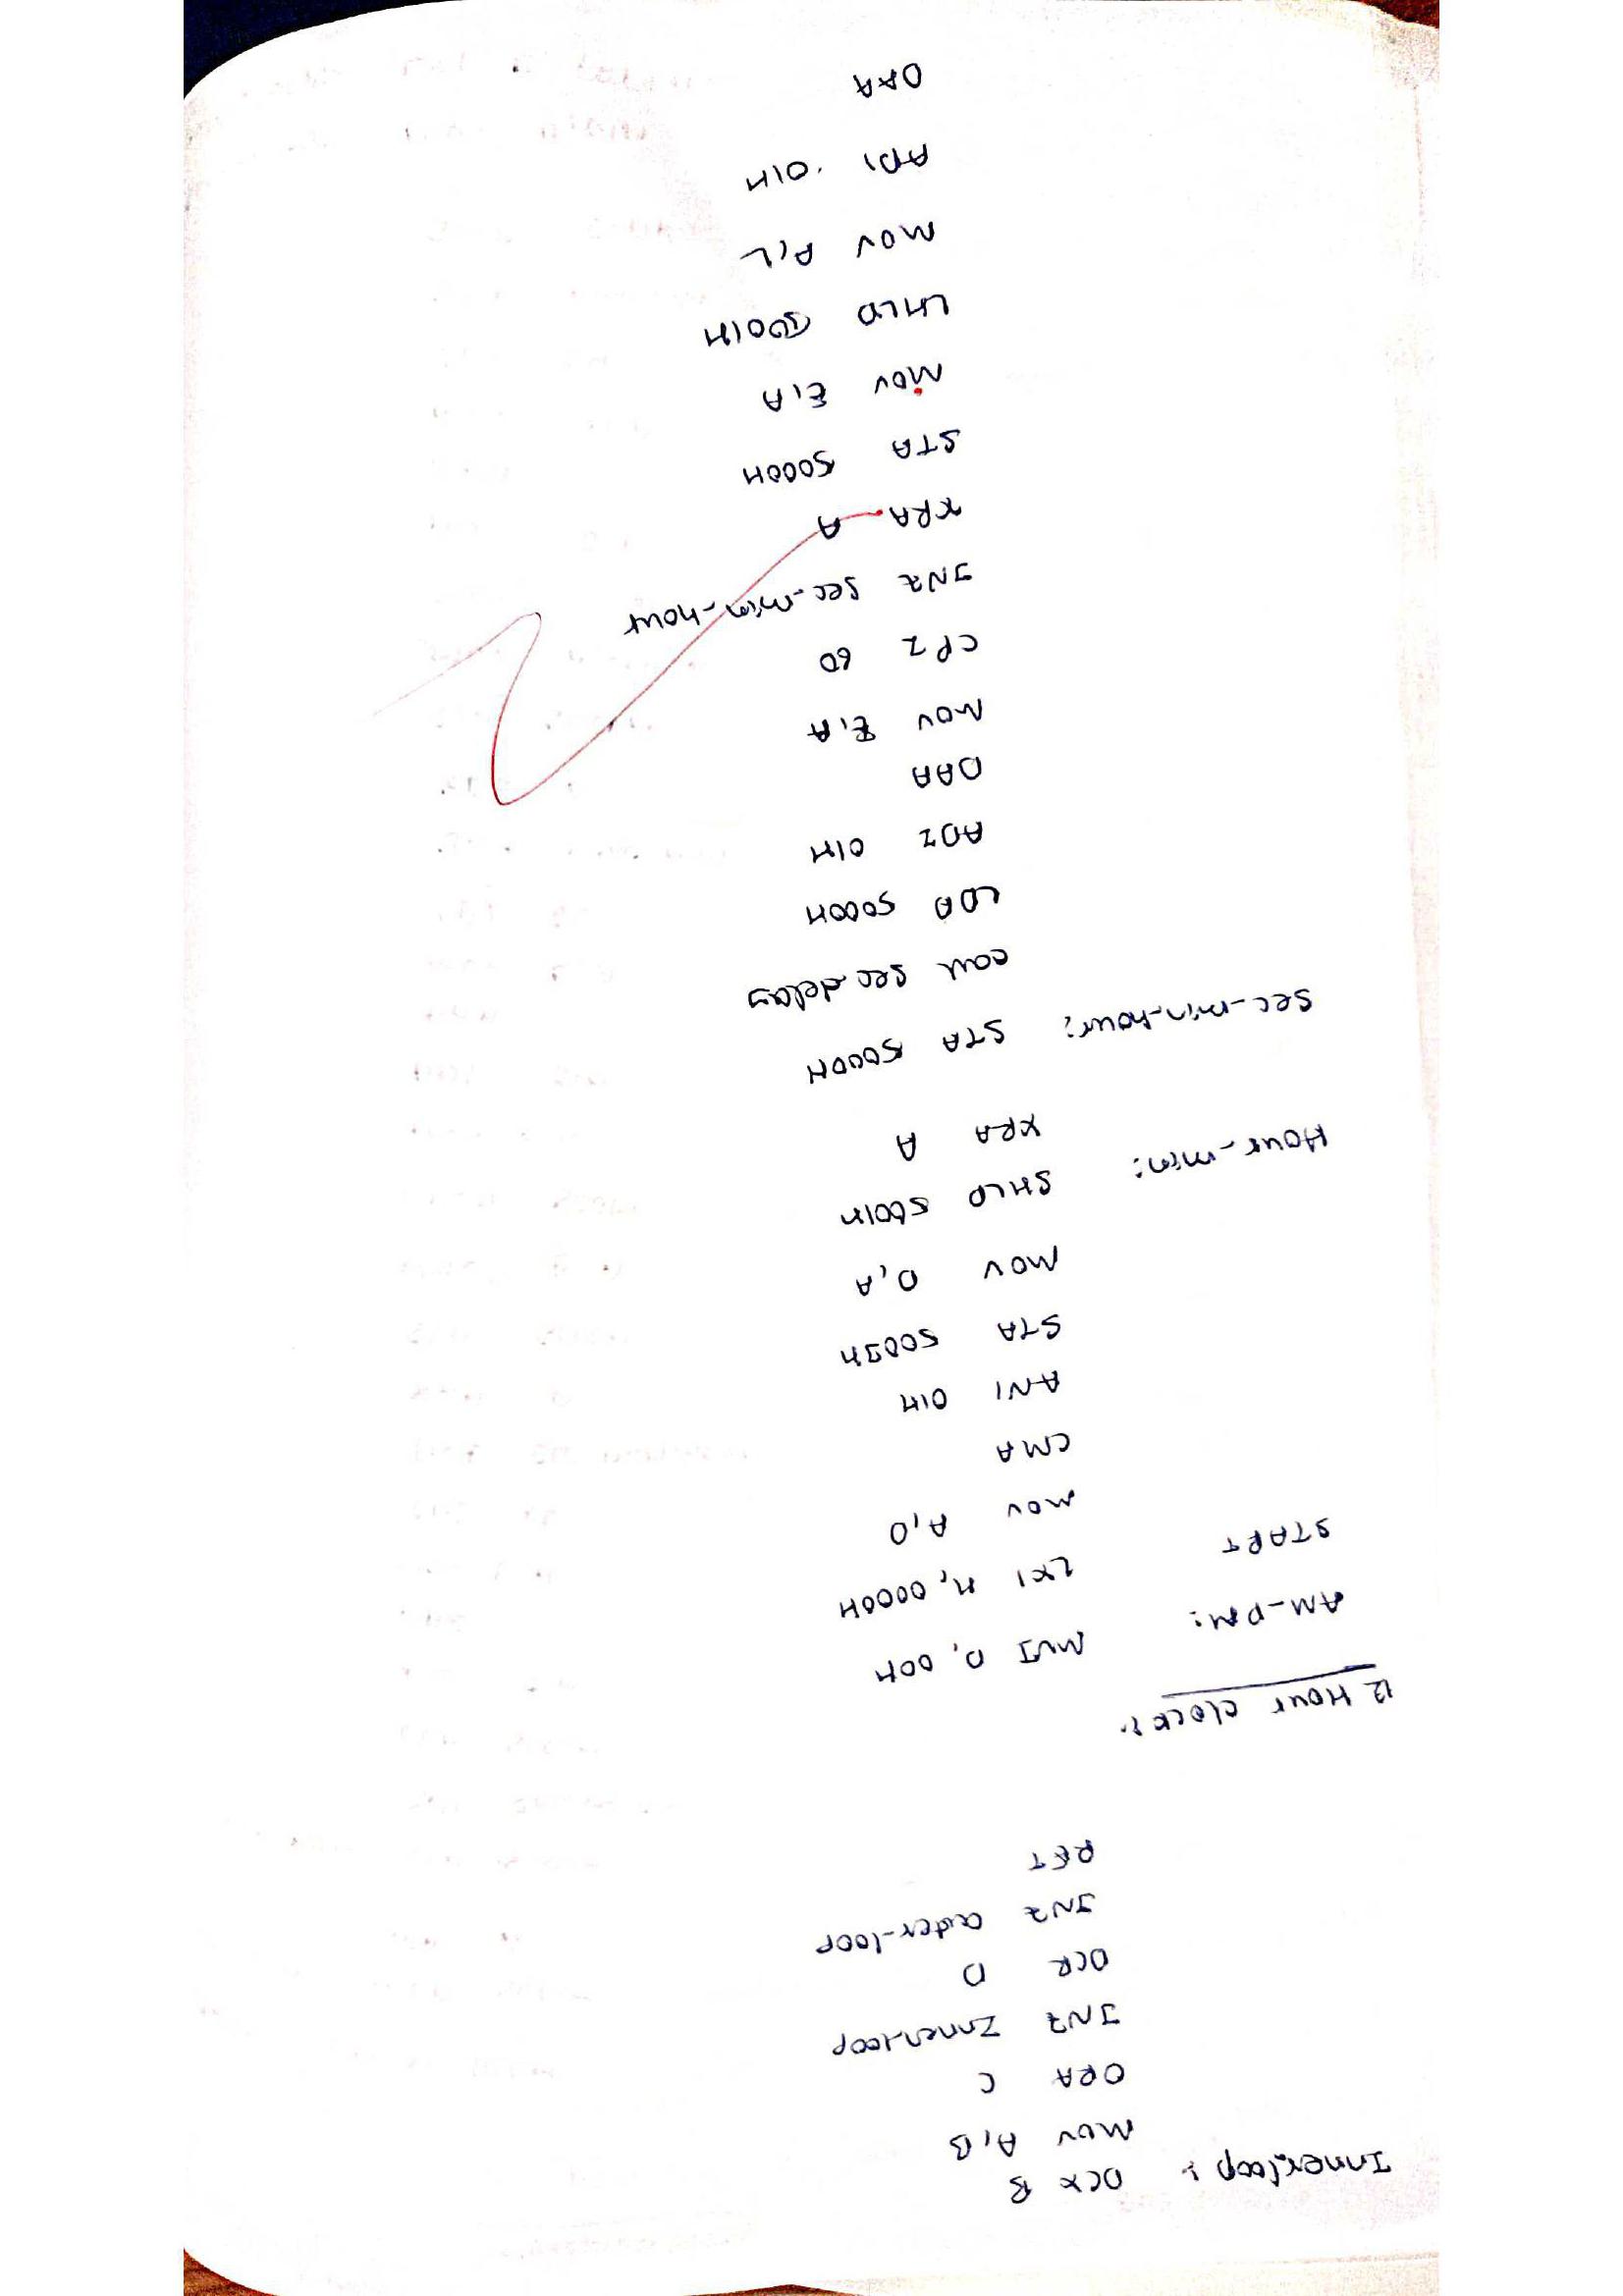 Innerloop : DCX B
MOV A,B
ORA C
JNZ Innerloop
DCR D
JNZ outer-loop
RET
12 Hour clock :
AM-PM: MVI D, 00H
START LXI H, 0000H
MOV A,D
CMA
ANI 01H
STA 5003H
MOV D,A
Hour-min: SHLD 5001H
XRA A
Sec-min-hour: STA 5000H
call sec delay
LDA 5000H
ADI 01H
DAA
MOV E,A
CPI 60
JNZ Sec-min-hour
XRA A
STA 5000H
MOV E,A
LHLD 5001H
MOV A,L
ADI 01H
DAA